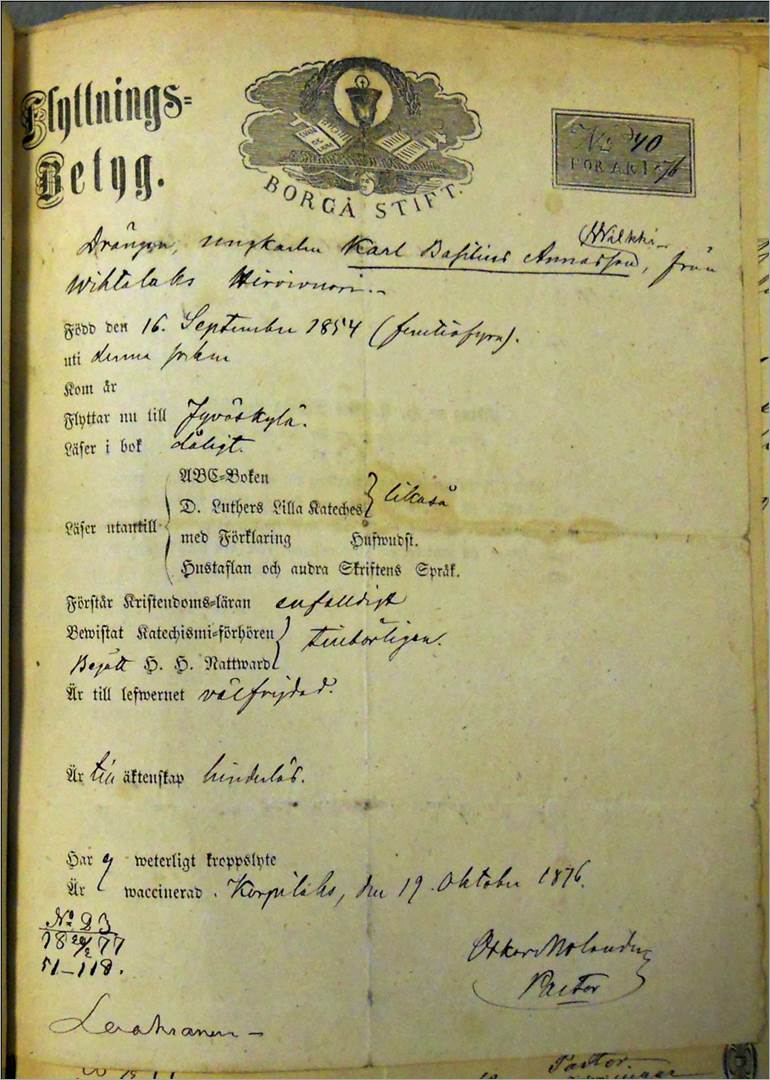 Flyttnings-
Betyg.
BORGÅ STIFT.
No 40
FÖR ÅR 1876
Drängen, ungkarlen Karl Basilius Annasson, från
Wihtalaks Hirvivuori.
Född den 16. September 1854 (femtiofyra).
uti denna socken
Kom år
Flyttar nu till Jyväskylä.
Läser i bok dåligt.
ABC-Boken
D. Luthers Lilla Kateches likaså
Läser utantill
med Förklaring Hufwudst.
Hustaflan och andra Skriftens Språk.
Förstår Kristendoms-läran enfalldigt
Bewistat Katechismi-förhören
tillbörligen.
Begått H. H. Nattward
Är till lefwernet välfrejdad.
Är till äktenskap hinderlös.
Har ej weterligt kroppslyte
Är waccinerad. Korpilaks, den 19 Oktober 1876.
No 23
18 77
51-118.
Oskar Molander
Pastor
Pastor.